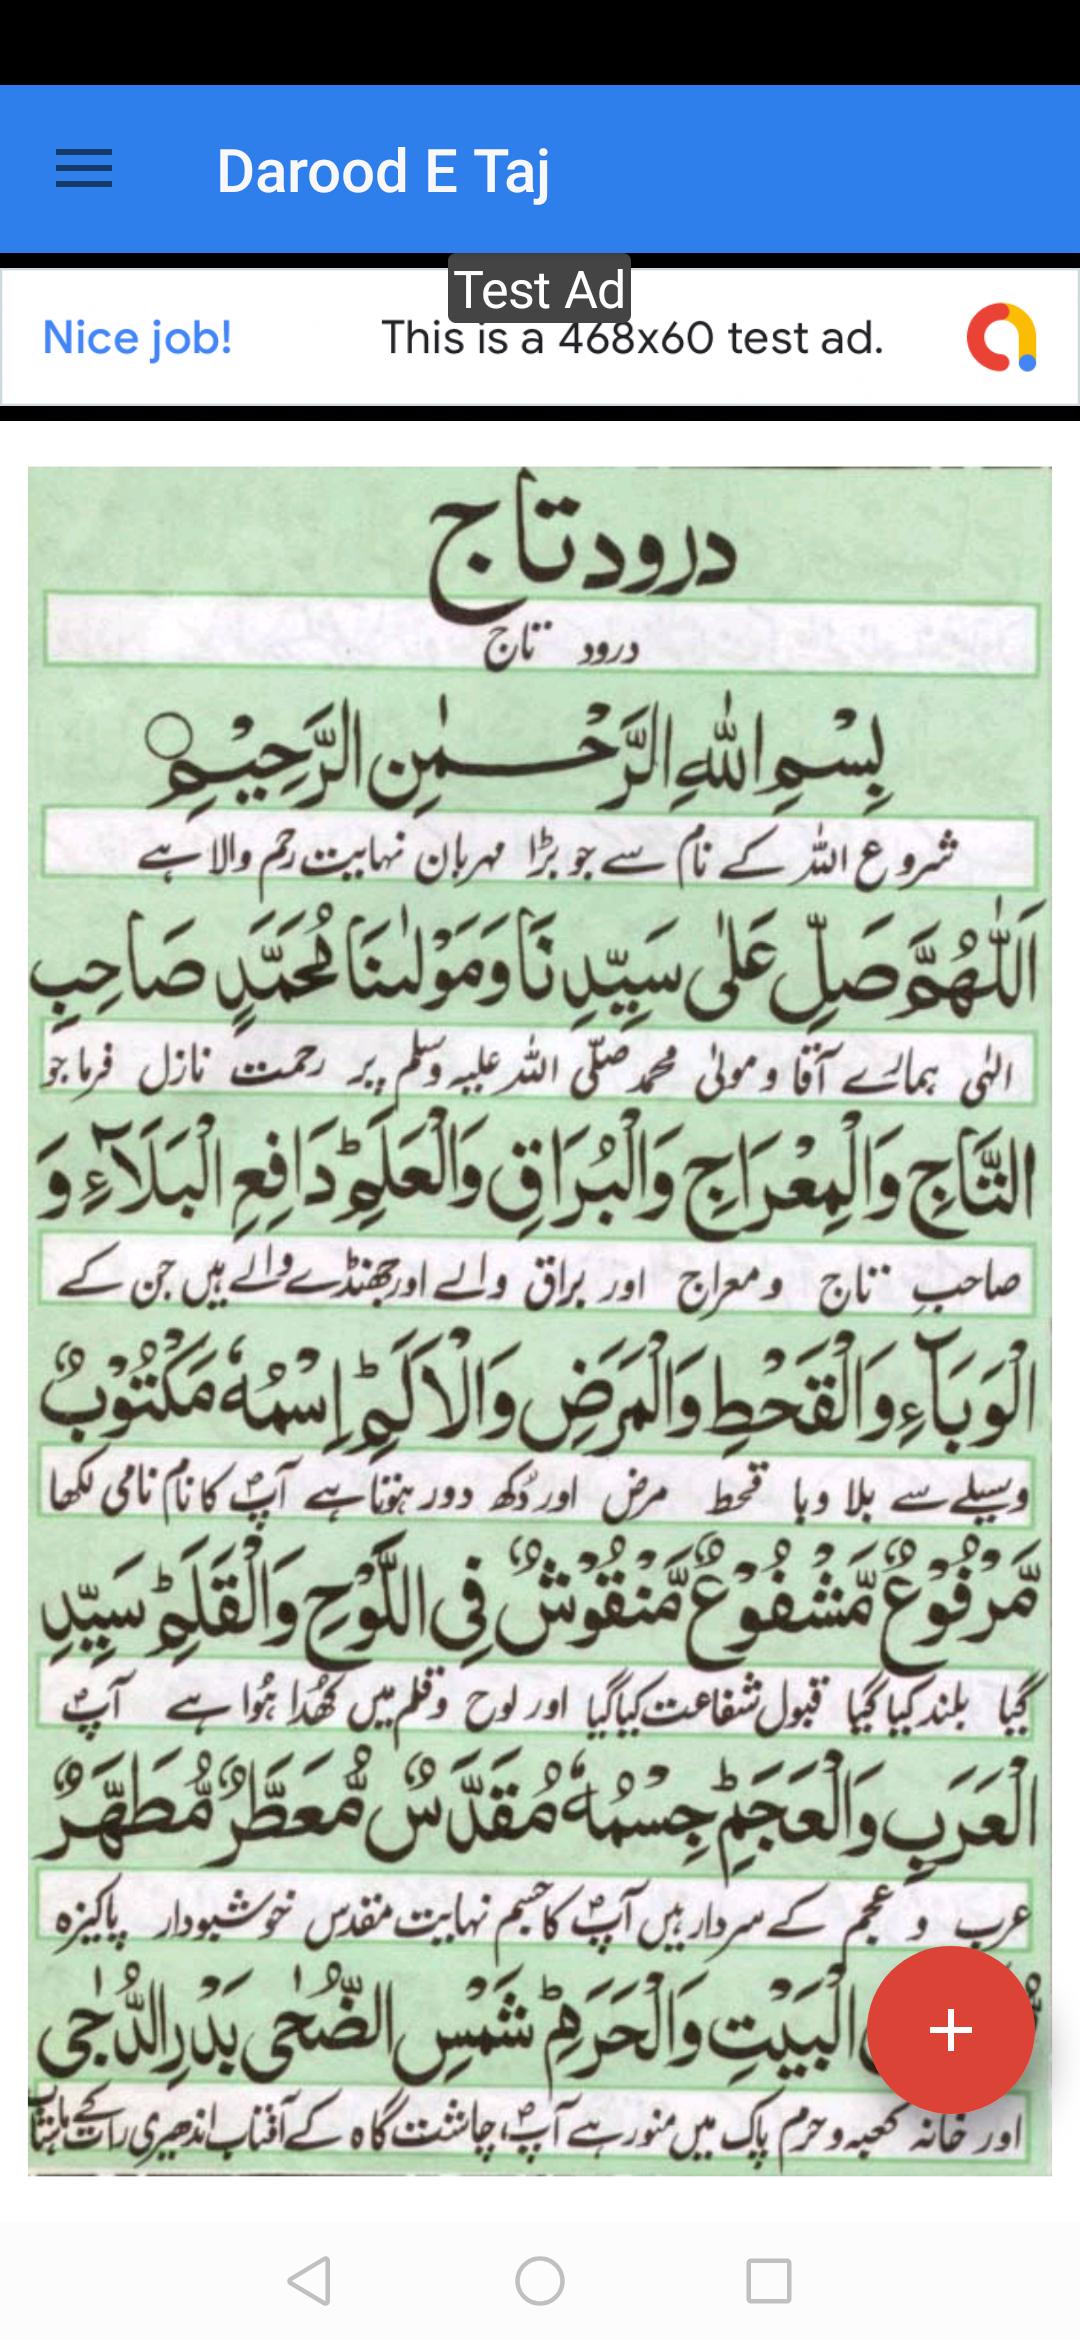 Darood E Taj
Test Ad
Nice job!
This is a 468x60 test ad.
درود تاج
درود تاج
بِسْمِ اللّٰهِ الرَّحْمٰنِ الرَّحِيْمِ
شروع اللہ کے نام سے جو بڑا مہربان نہایت رحم والا ہے
اَللّٰهُمَّ صَلِّ عَلٰى سَيِّدِنَا وَمَوْلٰىنَا مُحَمَّدٍ صَاحِبِ
الٰہی ہمارے آقا و مولیٰ محمد صلّی اللہ علیہ وسلم پر رحمت نازل فرما جو
التَّاجِ وَالْمِعْرَاجِ وَالْبُرَاقِ وَالْعَلَمِؕ دَافِعِ الْبَلَآءِ وَ
صاحبِ تاج و معراج اور براق والے اور جھنڈے والے ہیں جن کے
الْوَبَآءِ وَالْقَحْطِ وَالْمَرَضِ وَالْاَلَمِؕ اِسْمُهٗ مَكْتُوْبٌ
وسیلے سے بلا وبا قحط مرض اور دُکھ دور ہوتا ہے آپؐ کا نام نامی لکھا
مَّرْفُوْعٌ مَّشْفُوْعٌ مَّنْقُوْشٌ فِى اللَّوْحِ وَالْقَلَمِؕ سَيِّدِ
گیا بلند کیا گیا قبول شفاعت کیا گیا اور لوح و قلم میں کھُدا ہُوا ہے آپؐ
الْعَرَبِ وَالْعَجَمِؕ جِسْمُهٗ مُقَدَّسٌ مُّعَطَّرٌ مُّطَهَّرٌ
عرب و عجم کے سردار ہیں آپؐ کا جسم نہایت مقدس خوشبودار پاکیزہ
الْبَيْتِ وَالْحَرَمِؕ شَمْسِ الضُّحٰى بَدْرِ الدُّجٰى
اور خانہ کعبہ و حرم پاک میں منور ہے آپؐ چاشت گاہ کے آفتاب اندھیری رات کے